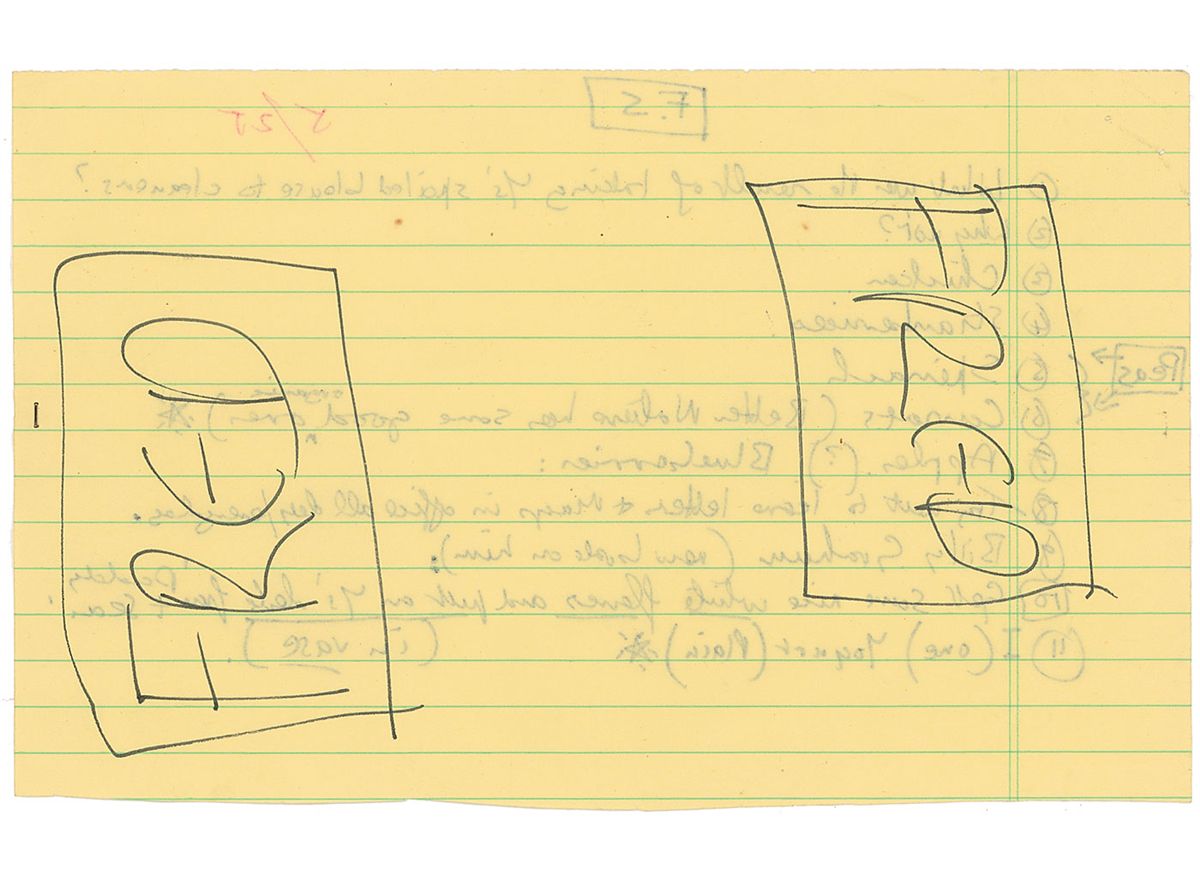 FRED
FRED
F.S
5/25
① What was the result of taking Y's spoiled blouse to cleaners?
② Why not?
③ Chicken
④ Strawberries
⑤ Spinach
Peas
⑥ Carrots (Better Nature has some good organic ones)
⑦ Apples. (?) Blueberries:
⑧ to leave letter + in office all
⑨ Billy Graham (new book on him).
⑩ Get some nice white flowers and put on Y's
(in vase).
⑪ I (one) Yogurt (Plain)